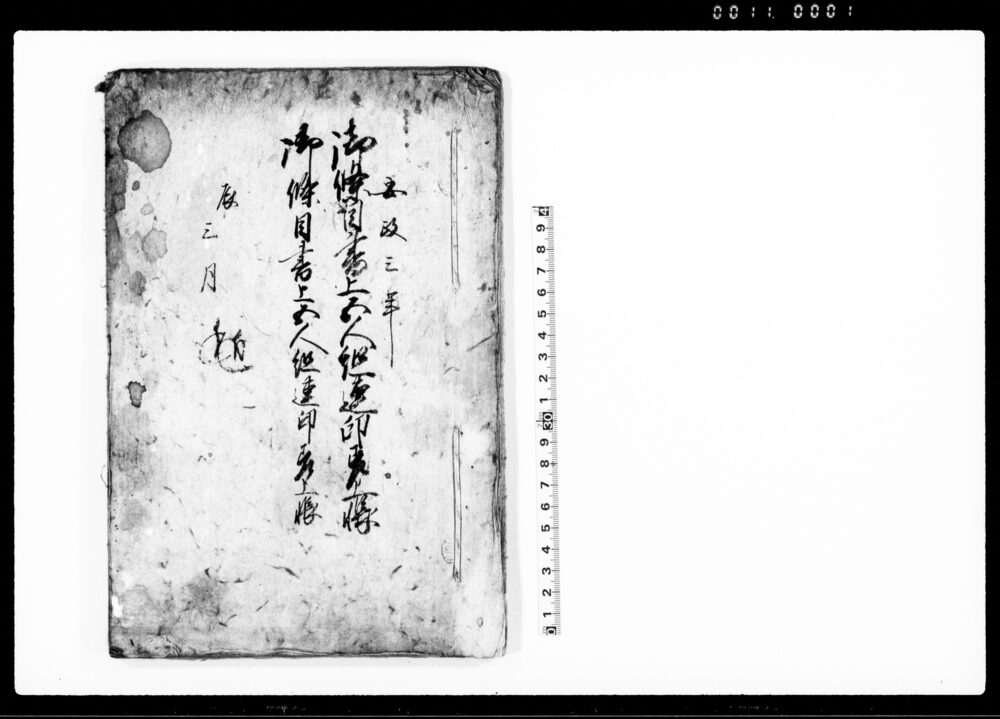 0011 0001
安政三年
御條目書上五人組連印差上帳
御條目書上五人組連印差上帳
辰三月
0 1 2 3 4 5 6 7 8 9 30 1 2 3 4 5 6 7 8 9 4